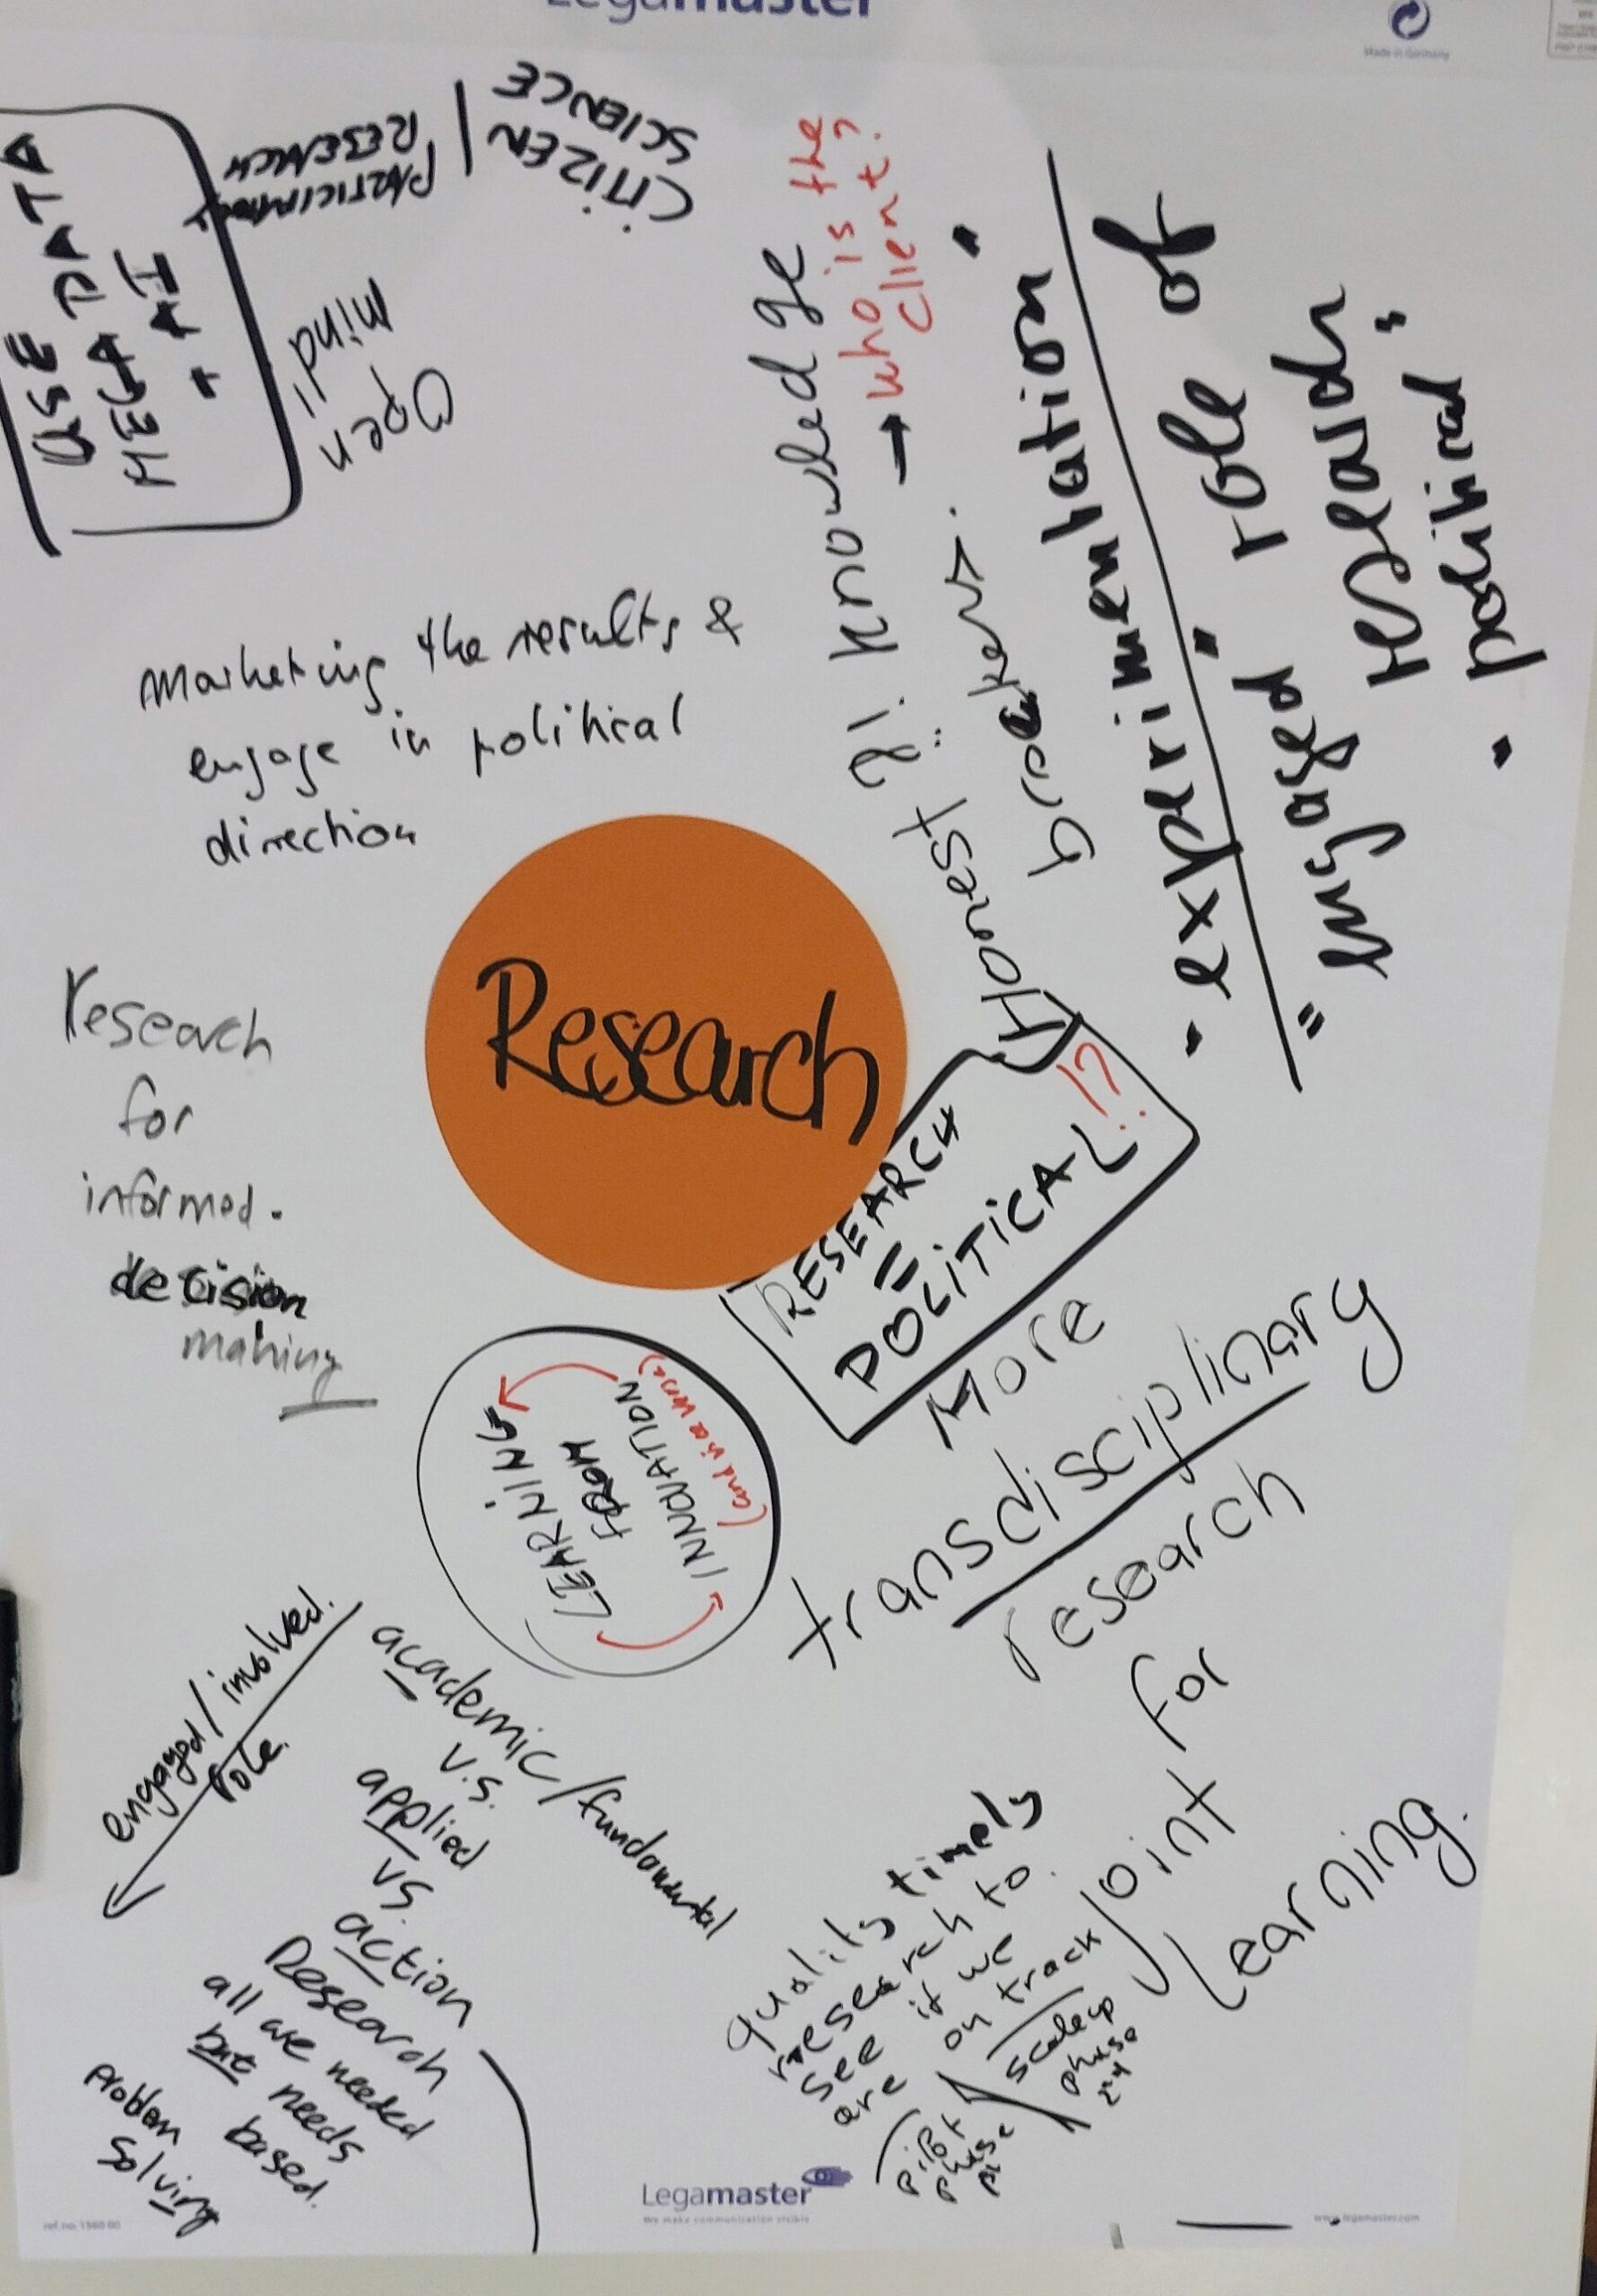 Legamaster
Made in Germany
USE
MEGA DATA
+ AI
PARTICIPATORY
RESEARCH
CITIZEN /
SCIENCE
Open
mind!
marketing the results &
engage in political
direction
knowledge
→ who is the
client?
Honest
brokers.
• experimentation •
"engaged" role of
research
• political"
Research
RESEARCH
=
POLITICAL!?
Research
for
informed.
decision
making
LEARNING
FROM
INNOVATION
(and vice versa)
More
transdisciplinary
research
for
Joint
Learning.
engaged/involved
role.
academic/fundamental
v.s.
applied
vs.
action
Research
all we needed
but needs
based.
problem
solving
quality timely
research to
see if we
are on track
pilot
phase
scale up
phase
Legamaster
We make communication visible
www.legamaster.com